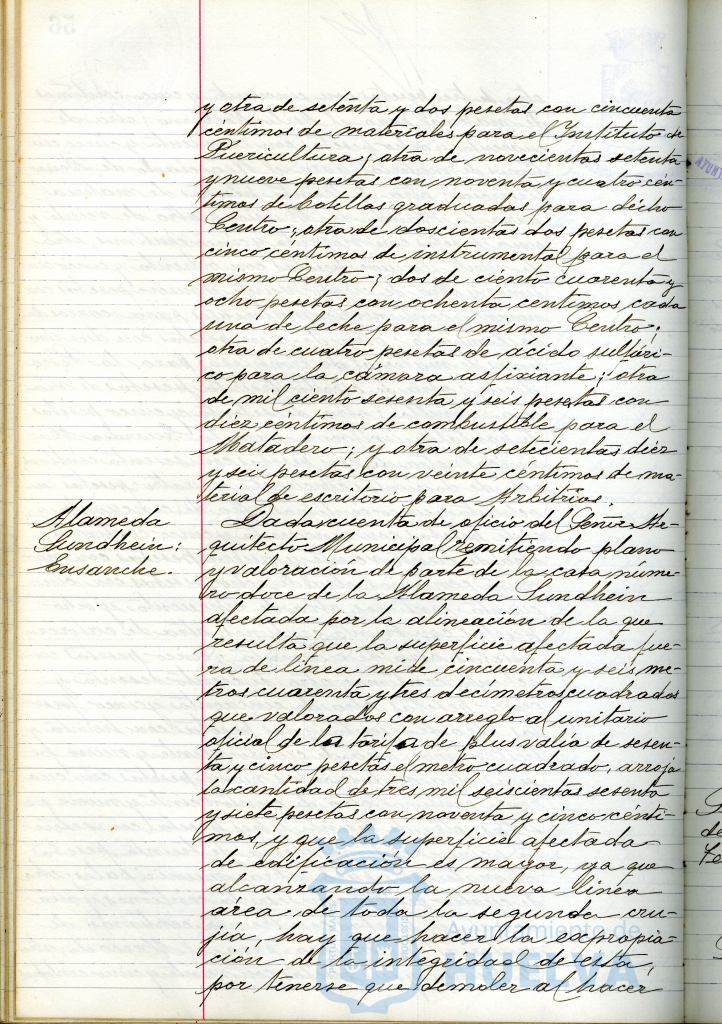 y otra de setenta y dos pesetas con cincuenta
céntimos de materiales para el Instituto de
Puericultura; otra de novecientas setenta
y nueve pesetas con noventa y cuatro cén-
timos de botellas graduadas para dicho
Centro; otra de doscientas dos pesetas con
cinco céntimos de instrumental para el
mismo Centro; dos de ciento cuarenta y
ocho pesetas con ochenta centimos cada
una de leche para el mismo Centro;
otra de cuatro pesetas de ácido sulfúri-
co para la cámara asfixiante; otra
de mil ciento sesenta y seis pesetas con
diez céntimos de combustible para el
Matadero; y otra de setecientas diez
y seis pesetas con veinte céntimos de ma-
terial de escritorio para Arbitrios.
Alameda
Sundhein:
Ensanche.
Dada cuenta de oficio del Señor Ar-
quitecto Municipal remitiendo plano
y valoración de parte de la casa núme-
ro doce de la Alameda Sundhein
afectada por la alineación de la que
resulta que la superficie afectada fue-
ra de línea mide cincuenta y seis me-
tros cuarenta y tres decímetros cuadrados
que valorados con arreglo al unitario
oficial de la tarifa de plus valía de sesen-
ta y cinco pesetas el metro cuadrado, arroja
la cantidad de tres mil seiscientas sesenta
y siete pesetas con noventa y cinco cénti-
mos, y que la superficie afectada
de edificación es mayor, ya que
alcanzando la nueva línea
área de toda la segunda cru-
jía, hay que hacer la expropia-
ción de la integridad de esta,
por tenerse que demoler al hacer
Ayuntamiento de
HUELVA